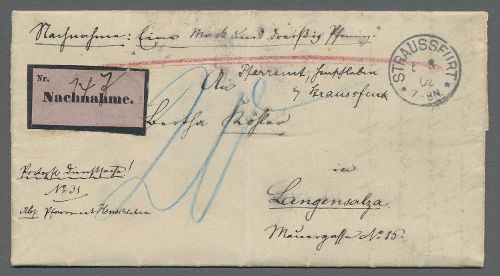 Nachnahme: Eine Mark und dreißig Pfennig.
STRAUSSFURT
02
7-8N
Nr. 147
Nachnahme.
Pfarramt Henschleben
b/ Straussfurt
An
Bertha Köhler
20
in
Langensalza
Mauergasse No 15.
Portopfl. Dienstsache!
No 31
Abs. Pfarramt Henschleben